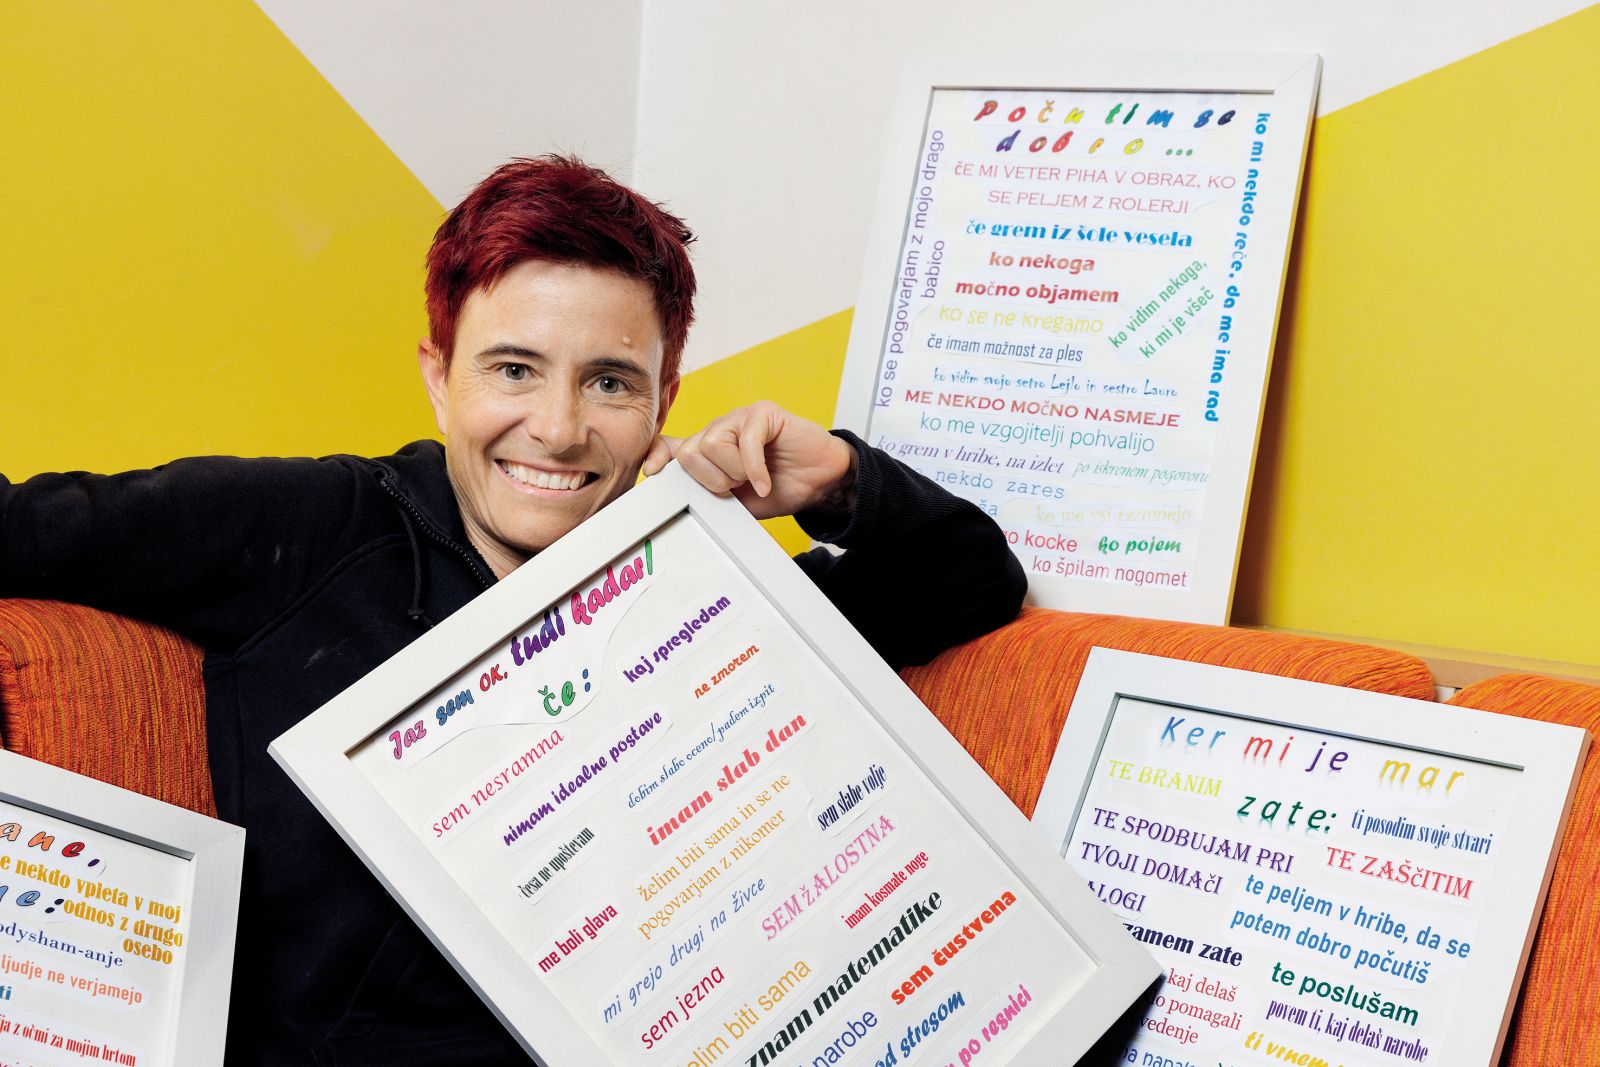 Počutim se
dobro ...
ko se pogovarjam z mojo drago
babico
ko mi nekdo reče, da me ima rad
če MI VETER PIHA V OBRAZ, KO
SE PELJEM Z ROLERJI
če grem iz šole vesela
ko nekoga
močno objamem
ko vidim nekoga,
ki mi je všeč
ko se ne kregamo
če imam možnost za ples
ko vidim svojo setro Lejlo in sestro Lauro
ME NEKDO MOčNO NASMEJE
ko me vzgojitelji pohvalijo
ko grem v hribe, na izlet
po iskrenem pogovoru
nekdo zares
ko me vsi razumejo
kocke
ko pojem
ko špilam nogomet
Jaz sem OK, tudi kadar/
če:
kaj spregledam
ne zmorem
sem nesramna
nimam idealne postave
dobim slabo oceno/padem izpit
imam slab dan
česa ne upoštevam
želim biti sama in se ne
pogovarjam z nikomer
sem slabe volje
me boli glava
mi grejo drugi na živce
SEM žALOSTNA
imam kosmate noge
sem jezna
želim biti sama
znam matematike
sem čustvena
narobe
pod stresom
po resnici
Ker mi je mar
zate:
TE BRANIM
ti posodim svoje stvari
TE SPODBUJAM PRI
TVOJI DOMAčI
ALOGI
TE ZAŠčITIM
te peljem v hribe, da se
potem dobro počutiš
zamem zate
te poslušam
kaj delaš
pomagali
vedenje
povem ti, kaj delaš narobe
ti vrnem
ane,
e nekdo vpleta v moj
ne:
odnos z drugo
osebo
odysham-anje
ljudje ne verjamejo
ti
ija z očmi za mojim hrtom